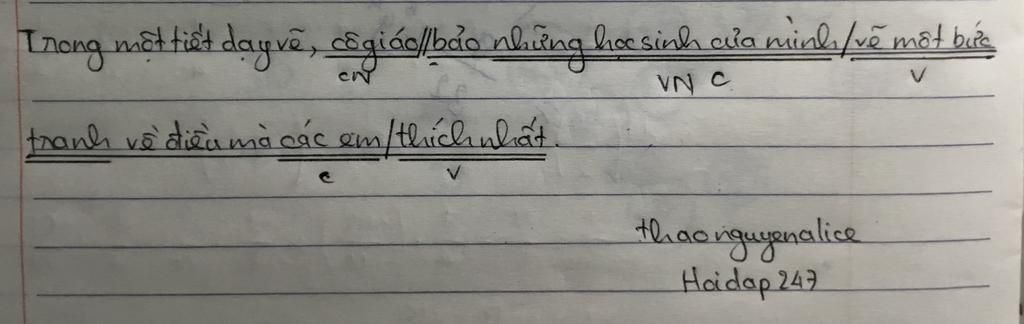 Trong một tiết dạy vẽ, cô giáo//bảo những học sinh của mình/vẽ một bức
CN VN C V
tranh về điều mà các em/thích nhất.
c v
thaonguyenalice
Hoidap247